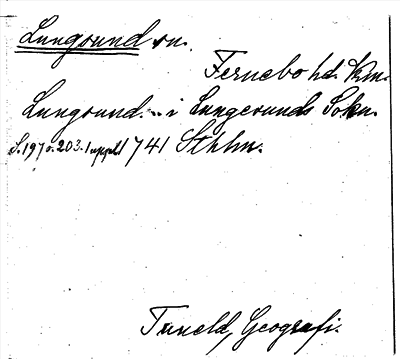 Lungsund sn.
Fernebo hd. Krm.
Lungsund... i Lungesunds Sokn.
S. 197 o. 203. 1 uppl. 1741 Sthlm.
Tuneld, Geografi.